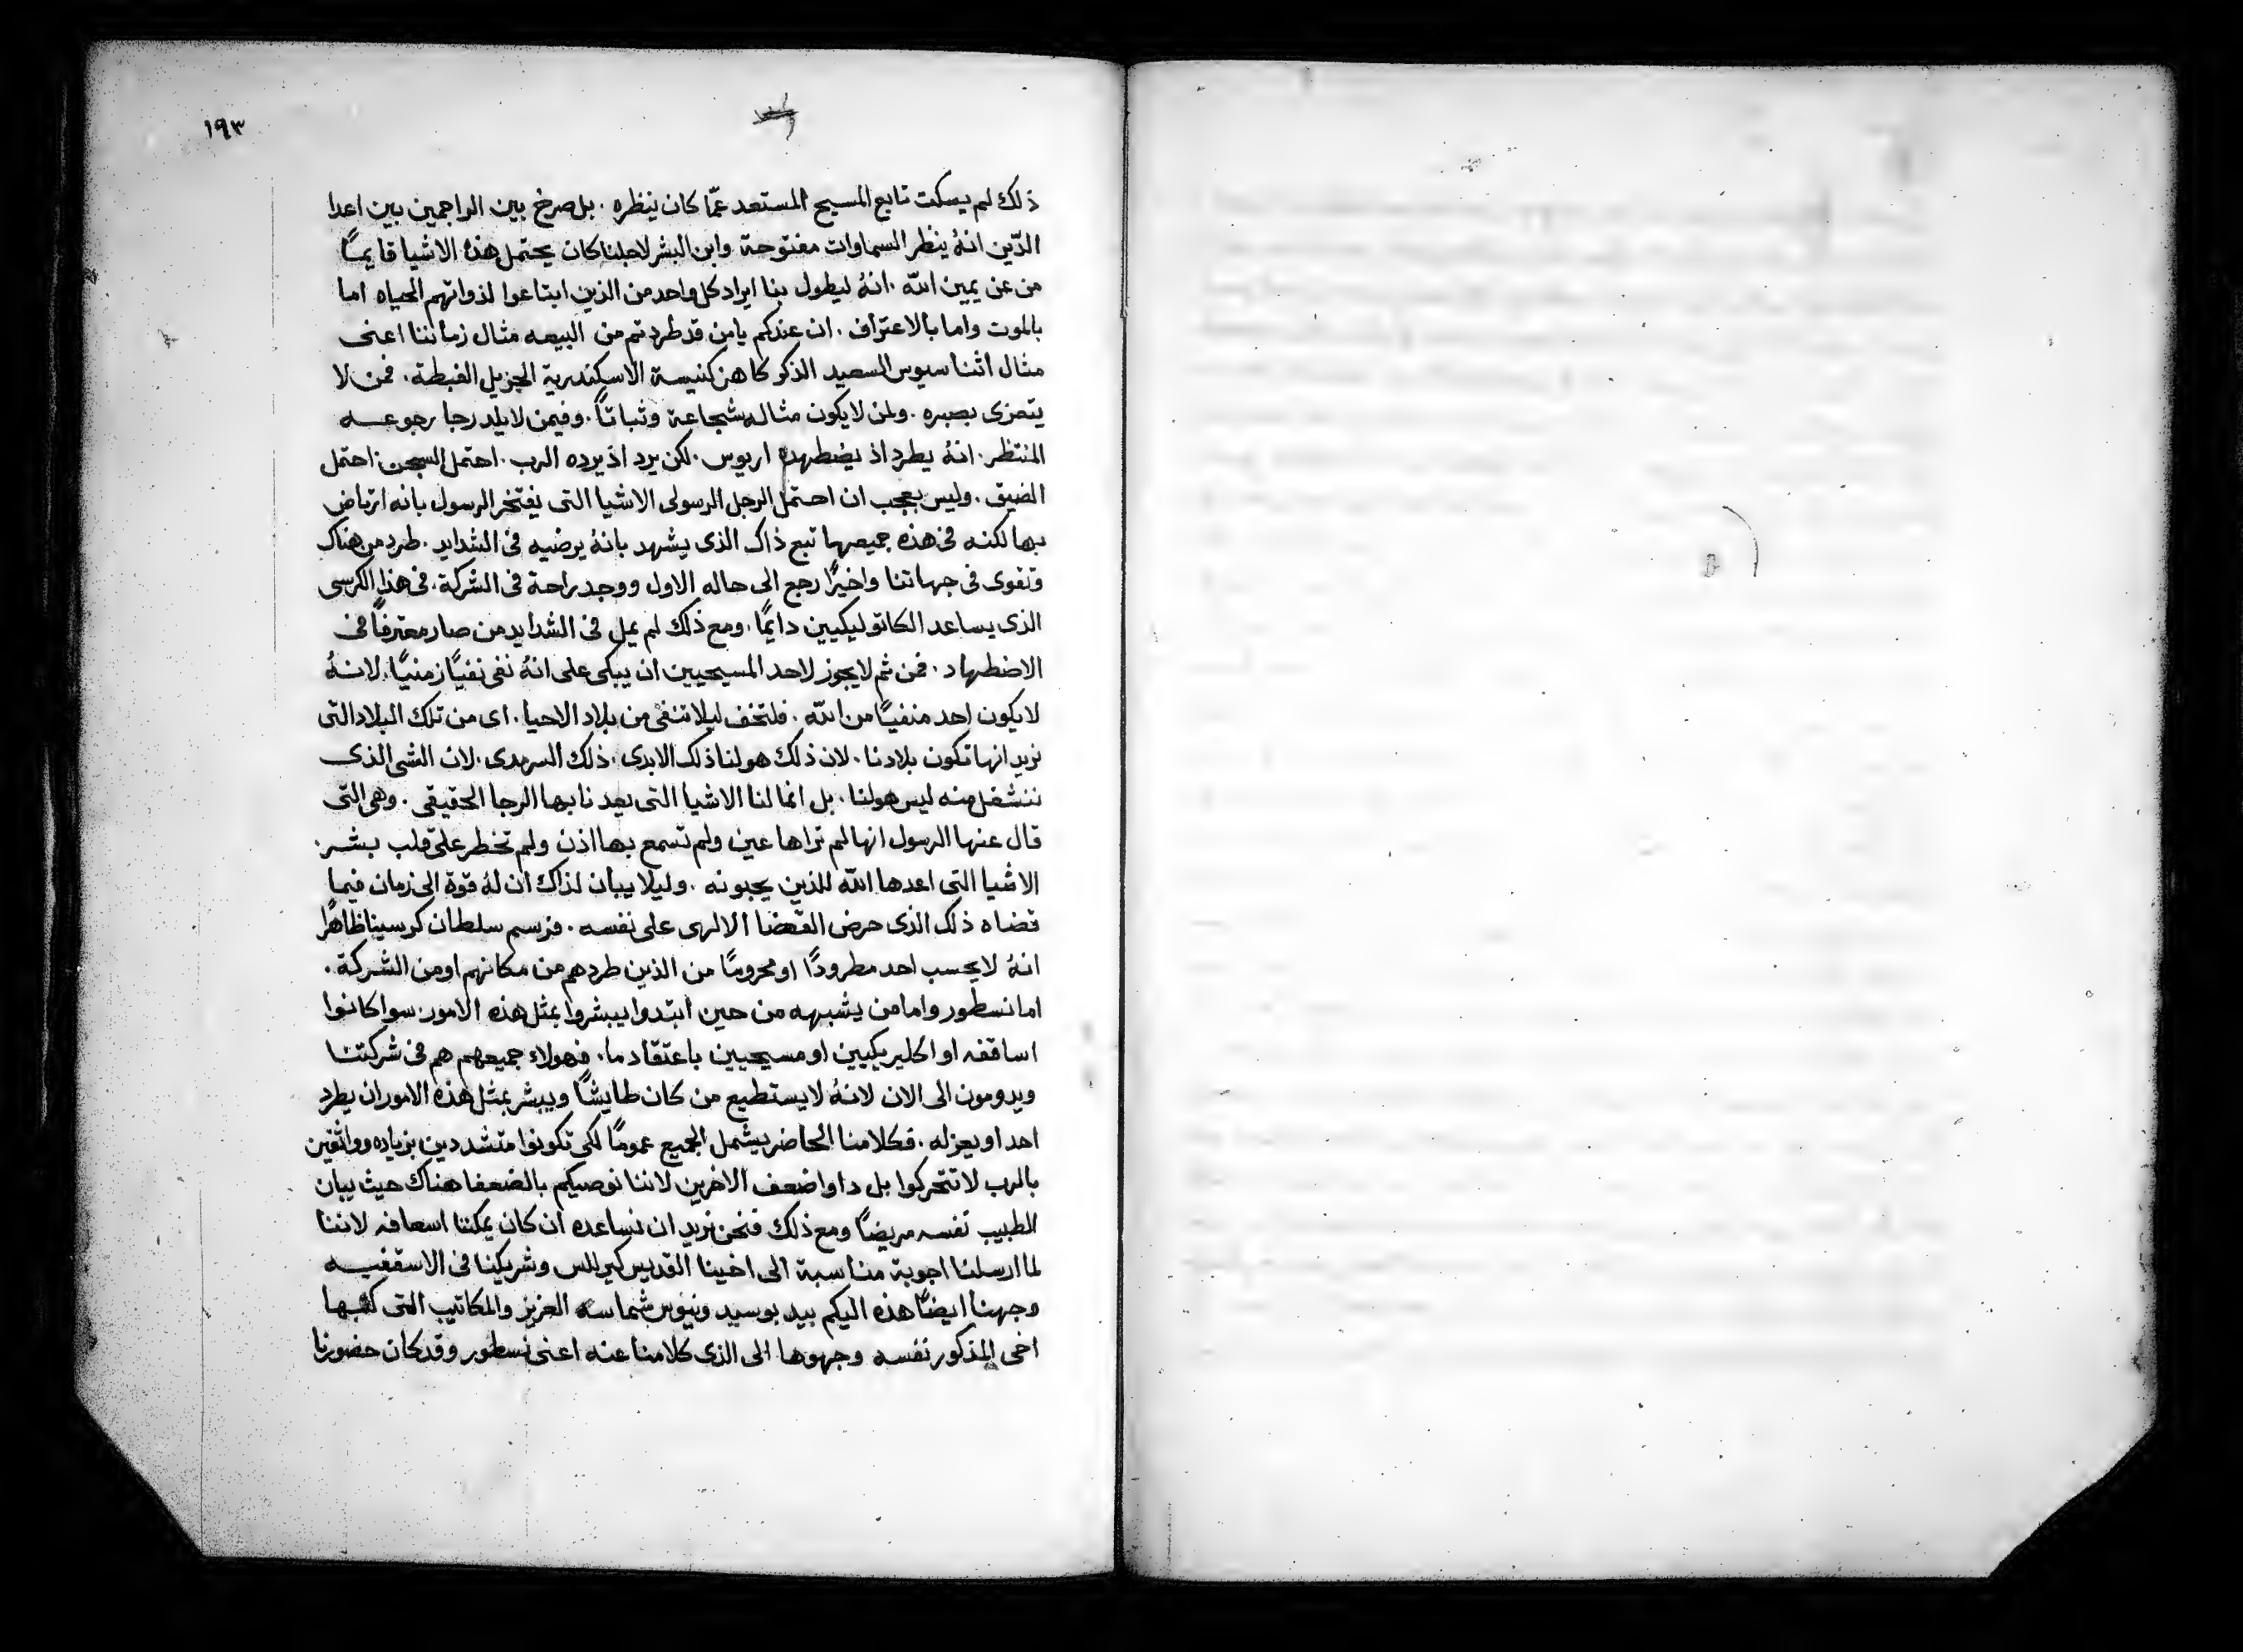 ١٩٣
ذلك لم يسكت تابع المسيح المستعد عمّا كان ينظره . بل صرخ بين الراجمين بين اعدا
الدّين انهُ ينظر السماوات مفتوحة وابن البشر لاجلنا كان يحتمل هذهُ الاشيا قايمـــًا
من عن يمين الله . انهُ ليطول بنا ايراد كل واحد من الذين ابتاعوا لذواتهم الحياه اما
بالموت واما بالاعتراف . ان عندكم يامن قد طردتم من البيعه مثال زماننا اعنى
مثال اثناسيوس السعيد الذكر كاهن كنيسة الاسكندرية الجزيل الغبطة . فمن لا
يتعزى بصبره . ولمن لا يكون مثاله شجاعة وثباتاً . وفيمن لا يلد رجا رجوعـــه
المنتظر . انهُ يطرد اذ يضطهده اريوس . لكن يرد اذ يرده الرب . احتمل السجن احتمل
الضيق . وليس بعجب ان احتمل الرجل الرسولى الاشيا التى يفتخر الرسول بانه ارتاض
بها لكنه فى هذه جميعها تبع ذاك الذى يشهد بانهُ يرضيه فى الشدايد . طرد من هناك
وتقوى فى جهاتنا واخيرًا رجع الى حاله الاول ووجد راحة فى الشركة . فى هذا الكرسى
الذى يساعد الكاتوليكيين دايمًا . ومع ذلك لم يمل فى الشدايد من صار معترفاً فى
الاضطهاد . فمن ثم لا يجوز لاحد المسيحيين ان يبكى على انهُ نفى نفيًا زمنيًا . لانـــهُ
لا يكون احد منفيـــًا من الله . فلتخف ليلا تنفى من بلاد الاحيا . اى من تلك البلاد التى
نريد انها تكون بلادنا . لان ذلك هو لنا ذلك الابدى . ذلك السرمدى . لان الشى الذى
ننشغل منه ليس هو لنا . بل انما لنا الاشيا التى يعدنا بها الرجا الحقيقى . وهى التى
قال عنها الرسول انها لم تراها عين ولم تسمع بها اذن ولم تخطر على قلب بشـــر .
الاشيا التى اعدها الله للذين يحبونه . وليلا يبان لذاك ان لهُ قوة الى زمان فيما
قضاه ذلك الذى حرض القضا الالهى على نفسه . فرسم سلطان كرسينا ظاهرًا
انهُ لا يحسب احد مطرودًا او محرومًا من الذين طردهم من مكانهم او من الشركة .
اما نسطور واما من يشبهه من حين ابتدوا يبشروا بمثل هذه الامور . سوا كانوا
اساقفه او اكليريكيين او مسيحيين باعتقاد ما . فهولاء جميعهم هم فى شركتنــا
ويدومون الى الان لانهُ لا يستطيع من كان طايشًا ويبشر بمثل هذه الامور ان يطرد
احد او يعزله . فكلامنا الحاضر يشمل الجميع عمومًا لكى تكونوا متشددين بزياده وواثقين
بالرب لا تتحركوا بل داوا ضعف الاخرين لاننا نوصيكم بالضعفا هناك حيث يبان
الطبيب نفسه مريضًا ومع ذلك فنحن نريد ان نساعده ان كان يمكننا اسعافه لاننا
لما ارسلنا اجوبة مناسبة الى اخينا القديس كيرللس وشريكنا فى الاسقفيـــه
وجهنا ايضًا هذه اليكم بيد بوسيدونيوس شماسه العزيز والمكاتيب التى كتبها
اخى المذكور نفسه وجهوها الى الذى كلامنا عنه اعنى نسطور وقد كان حضورنا